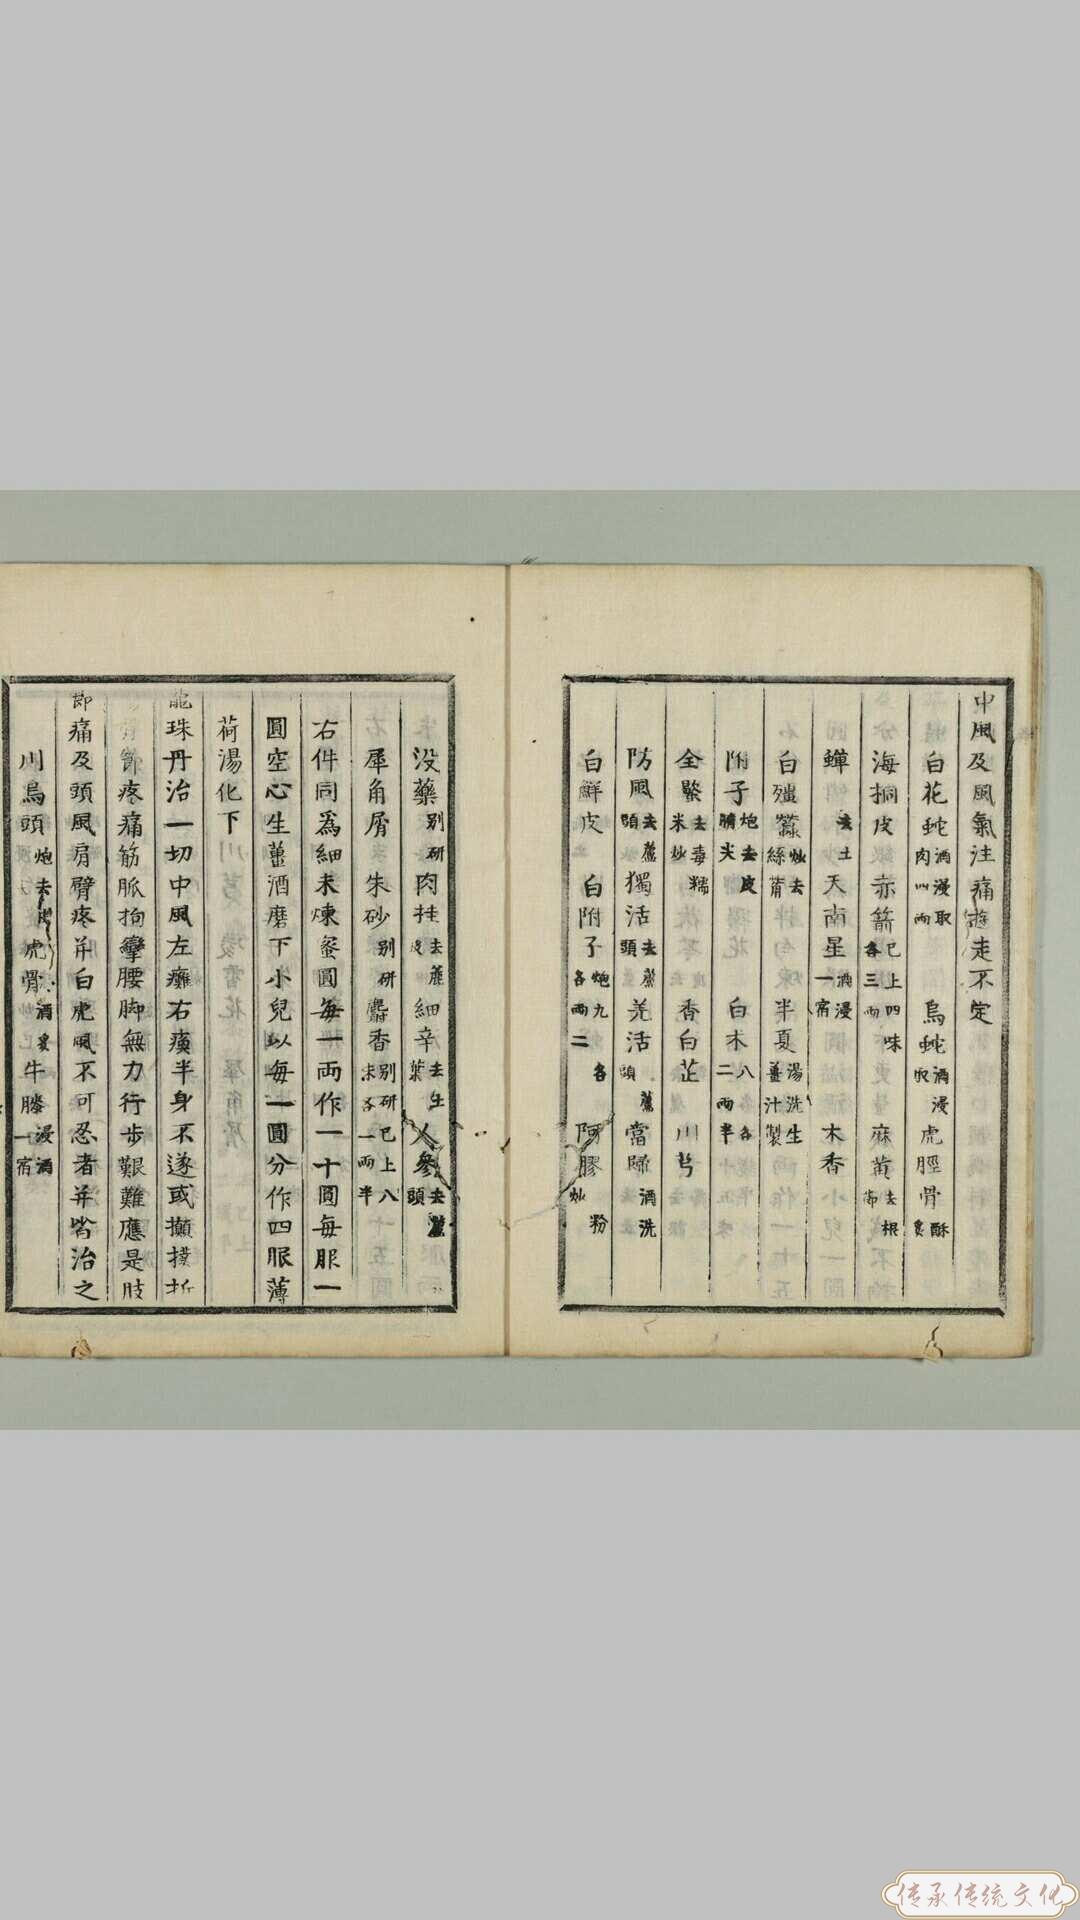 中風及風氣注痛遊走不定
白花蛇酒浸取肉四兩 烏蛇酒浸取 虎脛骨酥炙
海桐皮 赤箭已上四味各三兩 麻黄去根節
蟬去土 天南星酒浸一宿 木香
白殭蠶炒去絲觜 半夏湯洗生薑汁製
附子炮去皮臍尖 白木八各二兩半
全蝎去毒糯米炒 香白芷 川芎
防風去蘆頭 獨活去蘆頭 羌活蘆頭 當歸酒洗
白鮮皮 白附子炮九各各兩二 阿膠粉炒
没藥别研 肉桂去麁皮 細辛去生葉 人參去蘆頭
犀角屑 朱砂别研 麝香别研已上八味各一兩半
右件同爲細末煉蜜圓每一兩作一十圓每服一
圓空心生薑酒磨下小兒以每一圓分作四服薄
荷湯化下
龍珠丹治一切中風左癱右瘓半身不遂或攧撲折
骨節疼痛筋脈拘攣腰脚無力行步艱難應是肢
節痛及頭風肩臂疼并白虎風不可忍者并皆治之
川烏頭炮去皮 虎骨酒炙 牛膝浸酒一宿
传承传统文化